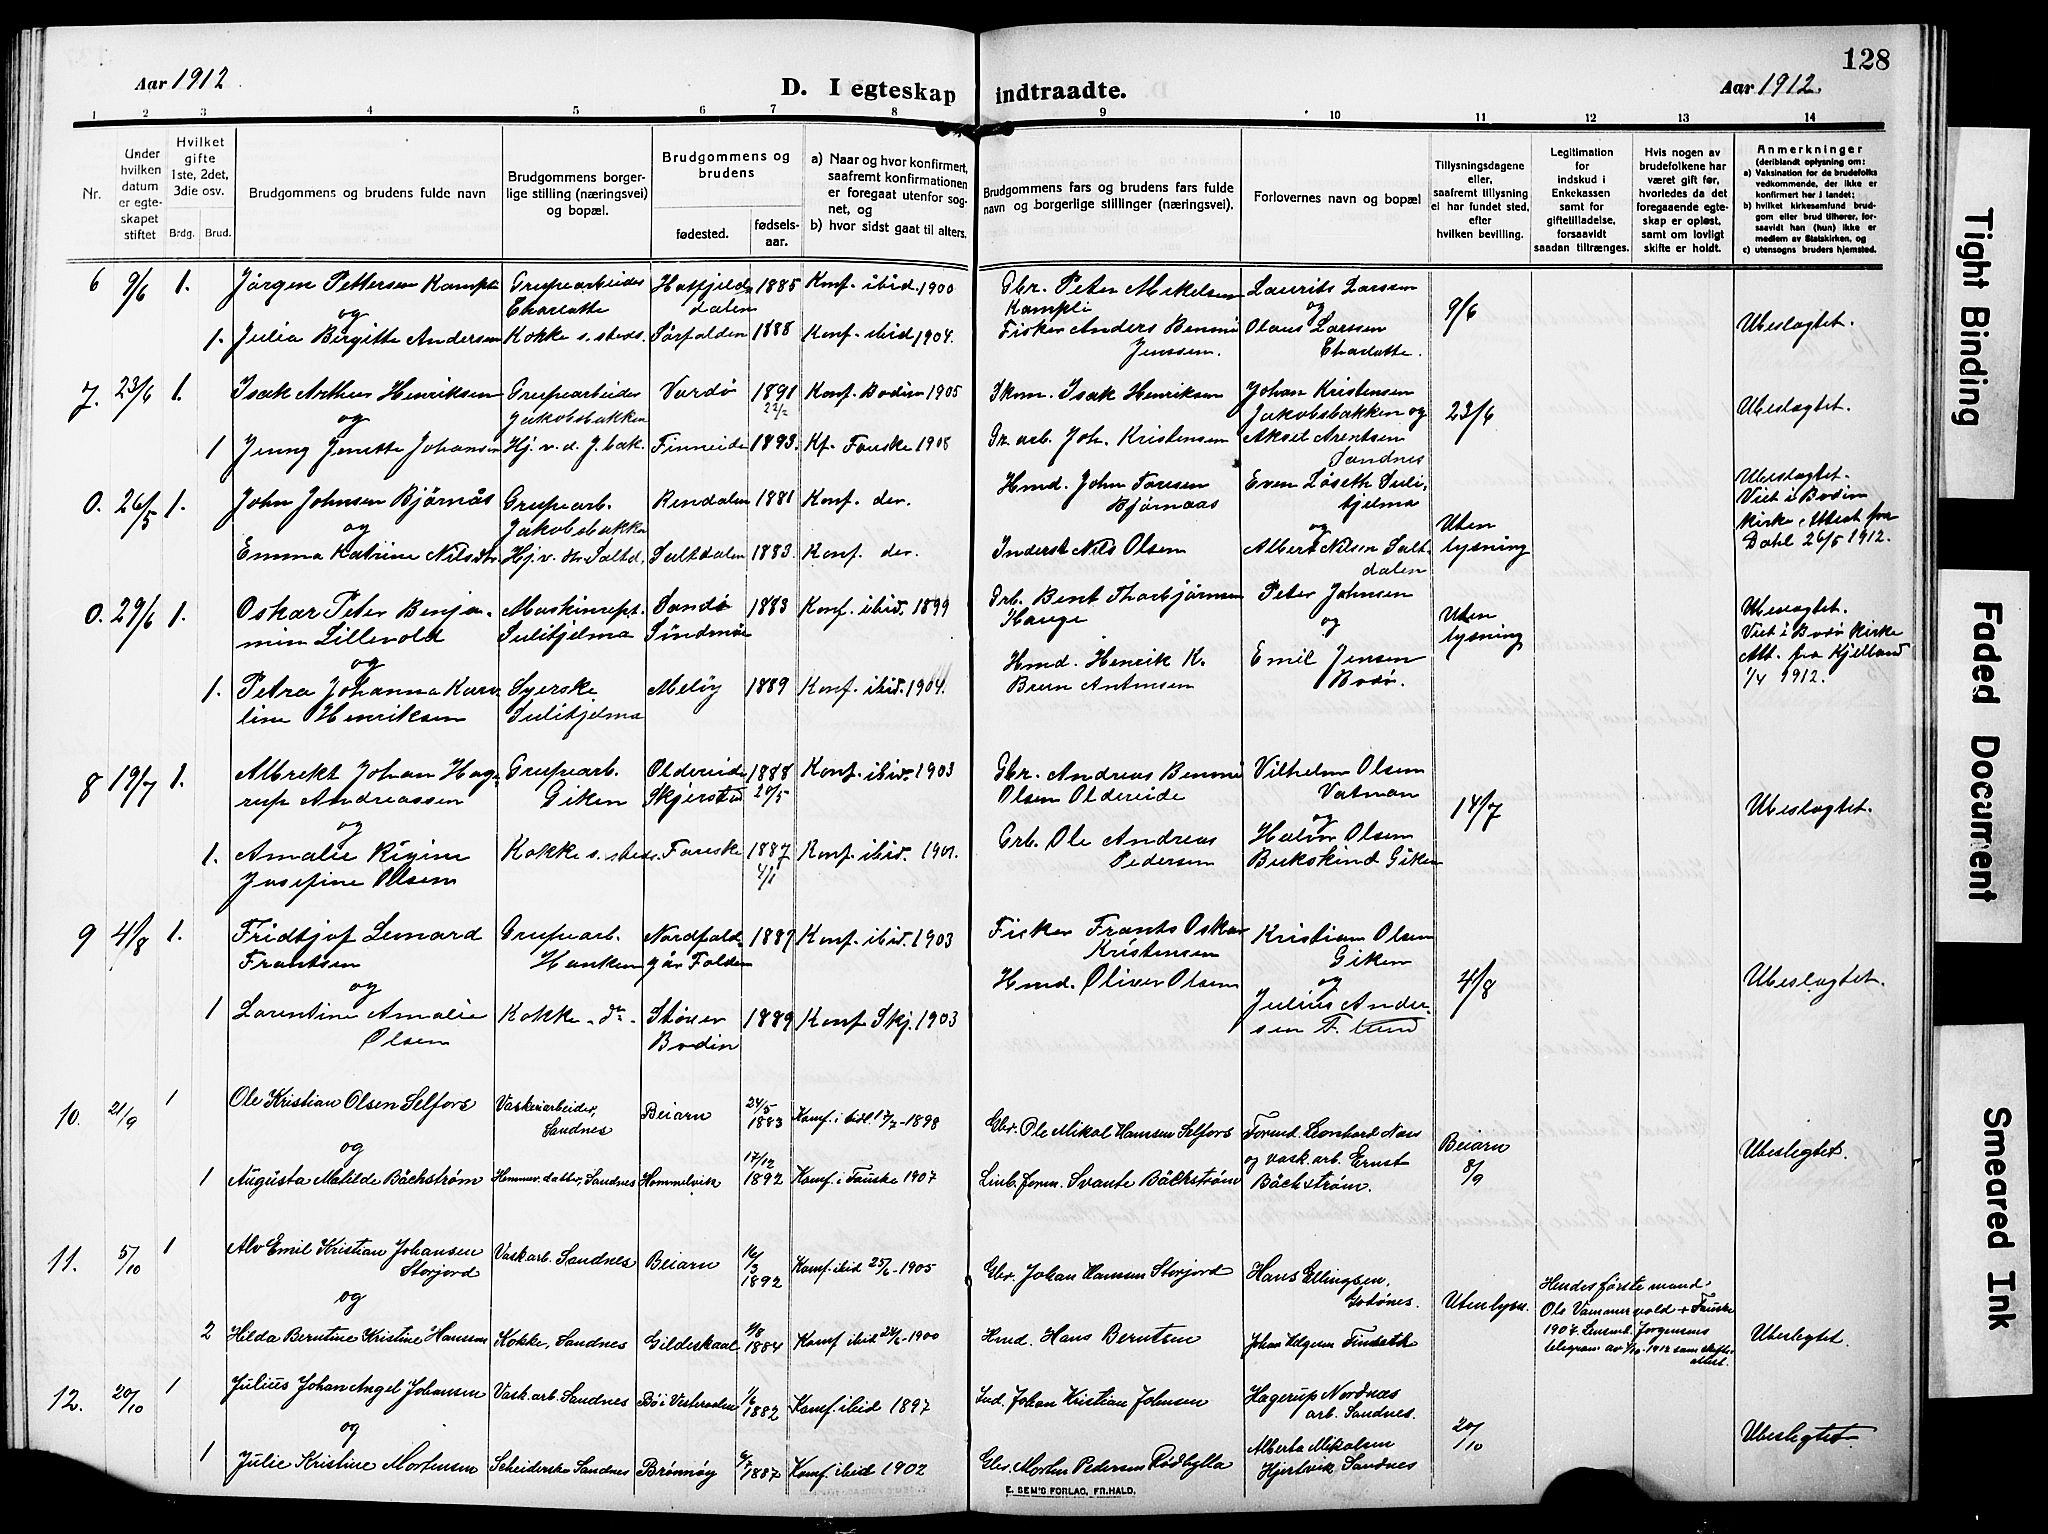 128
Aar 1912
D. I egteskap indtraadte.
Aar 1912.
1 2 3 4 5 6 7 8 9 10 11 12 13 14
Nr.
Under hvilken datum er egteskapet stiftet
Hvilket gifte 1ste, 2det, 3die osv.
Brdg. Brud.
Brudgommens og brudens fulde navn
Brudgommens borgerlige stilling (næringsvei) og bopæl.
Brudgommens og brudens
fødested. fødselsaar.
a) Naar og hvor konfirmert, saafremt konfirmationen er foregaat utenfor sognet, og
b) hvor sidst gaat til alters.
Brudgommens fars og brudens fars fulde navn og borgerlige stillinger (næringsvei).
Forlovernes navn og bopæl
Tillysningsdagene eller, saafremt tillysning ei har fundet sted, efter hvilken bevilling.
Legitimation for indskud i Enkekassen samt for giftetilladelse, forsaavidt saadan tiltrænges.
Hvis nogen av brudefolkene har været gift før, hvorledes da det foregaaende egteskap er opløst, samt om lovligt skifte er holdt.
Anmerkninger
(deriblandt oplysning om:
a) Vaksination for de brudefolks vedkommende, der ikke er konfirmert her i landet;
b) hvilket kirkesamfund brudgom eller brud tilhører, forsaavidt han (hun) ikke er medlem av Statskirken, og
c) utensogns bruders hjemsted.)
6 9/6 1. Jørgen Pettersen Kampli Grubearbeider Charlotte Hatfjelddalen 1885 Konf. ibid. 1900 Gbr. Peter Mikelsen Kampli Laurits Larssen 9/6
og
1. Julia Birgitte Andersen Kokke s. steds. Sørfolden 1888 Konf. ibid 1904. Fisker Anders Benoni Jenssen. Olaus Larssen Charlotte. Ubeslægtet.
7. 23/6 1. Isak Arthur Henriksen Grubearbeider Jakobsbakken Vardö 1891 22/2 Konf. Bodin 1905 Skom. Isak Henriksen Johan Kristensen Jakobsbakken og 23/6 Ubeslægtet.
og
1 Jenny Jenette Johansen Hj. v. d. J. bak. Finneide 1893. Kf. Fauske 1908 Gr. arb. Joh. Kristensen Aksel Arentsen Sandnes
0. 26/5 1. John Johnsen Bjørnås Grubearb. Jakobsbakken Rendalen 1881 Konf. der. Hmd. John Toresen Bjørnaas Even Løseth Sulitjelma Uten lysning Ubeslægtet. Viet i Bodin kirke. Attest fra Dahl 26/5 1912.
og
Emma Katrine Nilsdtr Hj. v. Saltd. Saltdalen 1883. Konf. der. Inderst Nils Olsen Albert Nilsen Saltdalen
0. 29/6 1. Oskar Peter Benjamin Lillevold Maskinrept. Sulitjelma Sandö Söndmör 1883 Konf. ibid. 1899 Grb. Bent Thorbjørnsen Hauge Peter Johnsen Uten lysning Ubeslægtet. Viet i Bodö kirke Att. fra Kjelland 1/7 1912.
og
1. Petra Johanna Karoline Henriksen Syerske Sulitjelma Meløy 1889 Konf. ibid. 1904 Hmd. Henrik K. Brun Antonsen Emil Jensen Bodö.
8 19/7 1. Albrekt Johan Hagerup Andreassen Grubearb. Giken Oldereide Skjerstad 1888 20/5 Konf. ibid. 1903 Gbr. Andreas Benoni Olsen Oldereide Vilhelm Olsen Vatman 14/7 Ubeslægtet.
og
1. Amalie Regine Josefine Olsen Kokke s. steds. Fauske 1887 4/1 Konf. ibid. 1901. Grb. Ole Andreas Pedersen Halvor Olsen Bukskind Giken
9 4/8 1. Fridtjof Lenard Frantsen Grubearb. Hanken Nordfolden 1887 Konf. ibid. 1903 Fisker Frants Oskar Kristensen Kristian Olsen Giken 4/8 Ubeslægtet.
og
1 Larentine Amalie Olsen Kokke - do - Støver Bodin 1889 Konf. Skj. 1903 Hmd. Oliver Olsen Julius Andersen F. lund
10. 21/9 1 Ole Kristian Olsen Selfors Vaskeriarbeider, Sandnes Beiarn 24/5 1883 Konf. i ibid. 17/7 - 1898 Gbr. Ole Mikal Hanssen Selfors Formd. Leonhard Næss Beiarn 8/9 Ubeslegtet.
og
1 Augusta Matilde Bäckstrøm Hjemmev. datter, Sandnes Hommelvik 17/12 1892 Konf. i Fauske 1907 Linb. form. Svante Bäckstrøm og vask. arb. Ernst Bäckstrøm.
11. 5/10 1 Alv Emil Kristian Johansen Storjord Vaskarb. Sandnes Beiarn 16/3 1892 Konf. ibid 25/6 - 1905 Gbr. Johan Hansen Storjord Hans Ellingsen, Godønes. Uten lysn.
og
2 Hilda Berntine Kristine Hanssen Kokke, Sandnes Gildeskaal 4/8 1884 Konf. ibid 24/6 - 1900 Hmd. Hans Berntsen Johan Helgesen Finseth Hendes første mand: Ole Vammervold + Fauske 1907. Lensmd. Jørgensens telegram av 4/10 - 1912 som skifteattest. Ubeslegtet.
12. 20/10 1 Julius Johan Angel Johansen Vask. arb. Sandnes Bø i Vesteraalen 1/6 1882 Konf. ibid 1897 Ind. Johan Kristian Johnsen Hagerup Nordnæs arb. Sandnes. 20/10 Ubeslegtet.
og
1 Julie Kristine Mortensen Scheiderske Sandnes Brønnøy 9/7 1887 Konf. ibid 1902 Gbr. Morten Pedersen Rødhylla Alberta Mikalsen Hjertvik Sandnes
E. SEM'S FORLAG, FR.HALD.
Tight Binding
Faded Document
Smeared Ink